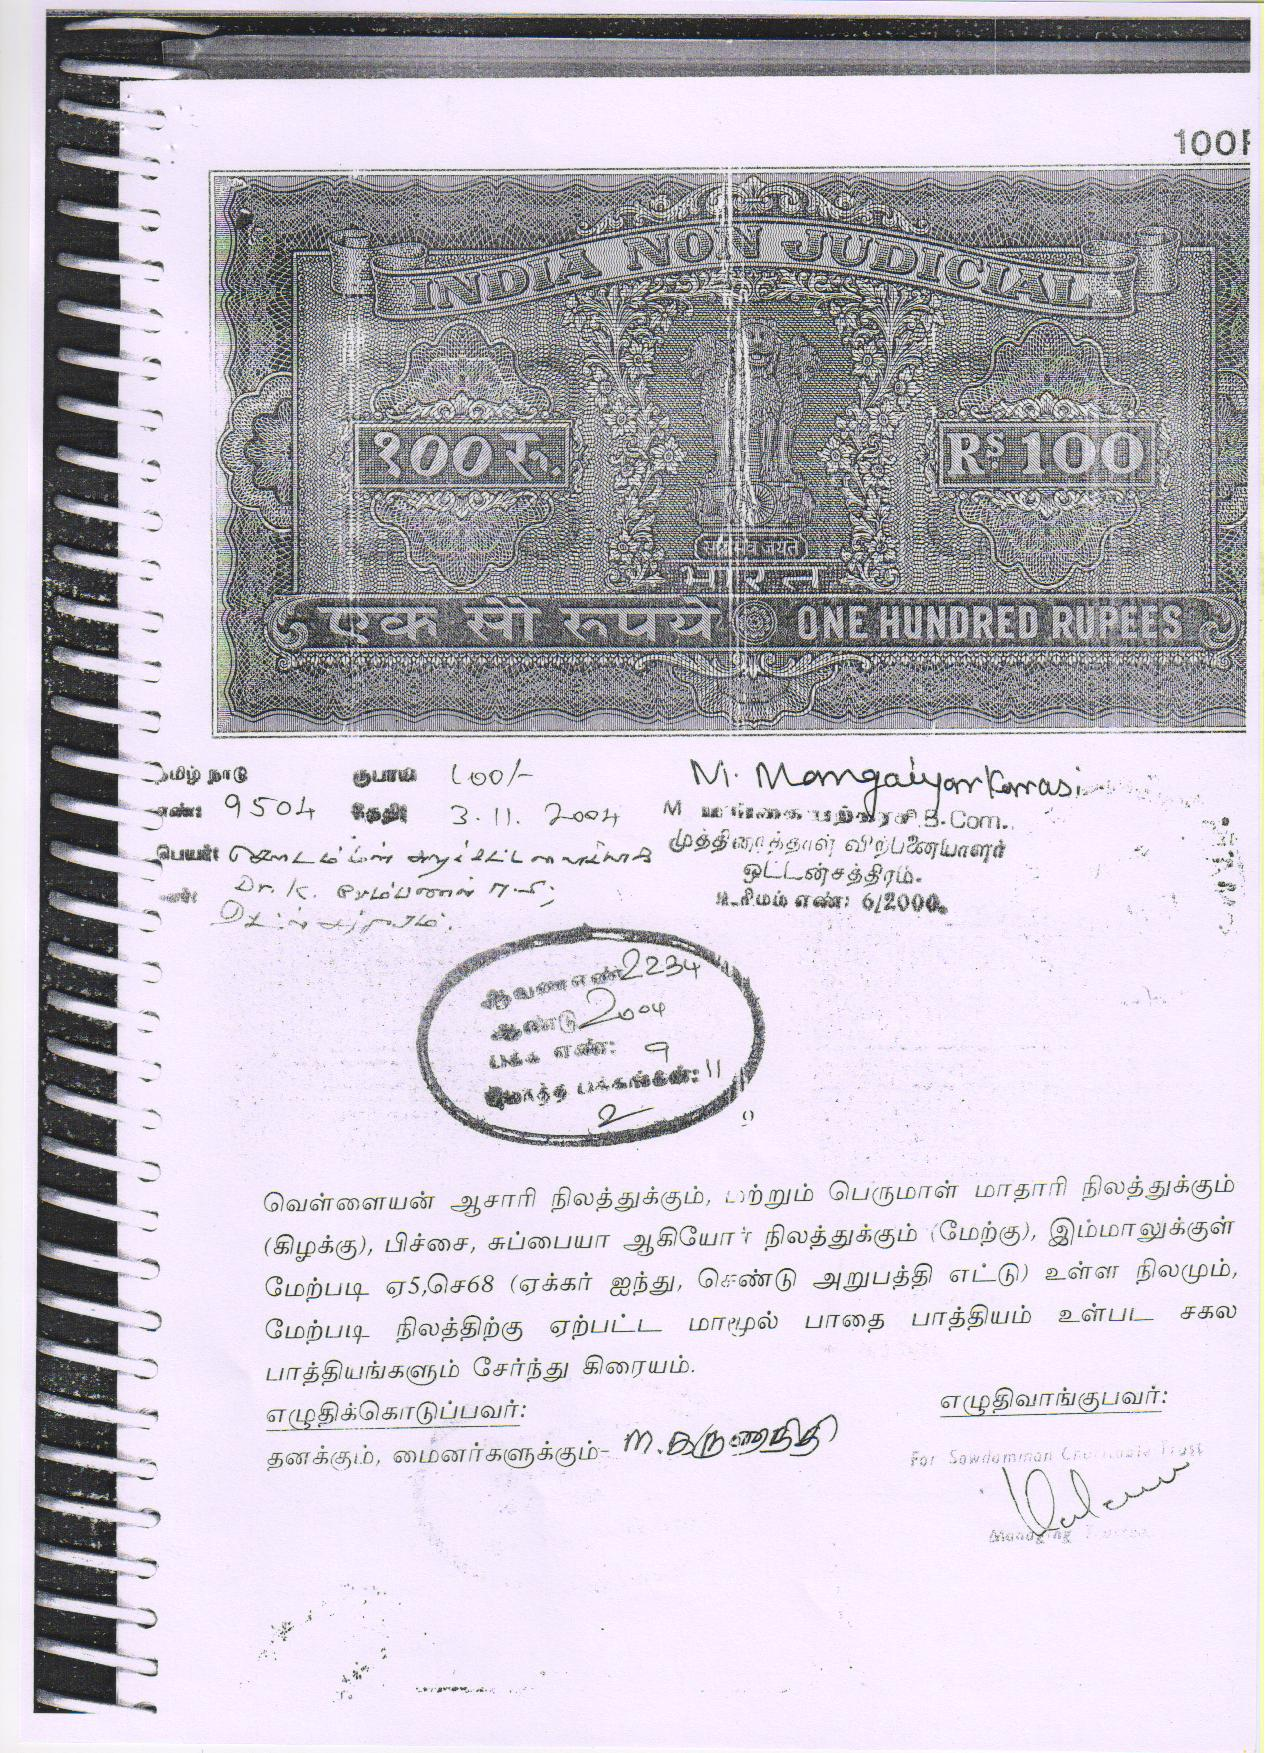 100
INDIA NON JUDICIAL
१००रु. Rs 100
सत्यमेव जयते
भारत
एक सौ रुपये ONE HUNDRED RUPEES
தமிழ் நாடு ரூபாய் 100/- M. Mangaiyarkarasi
எண்: 9504 தேதி: 3.11.2004 M மங்கையற்கரசி B.Com.,
பெயர்: முத்திரைத்தாள் விற்பனையாளர்
Dr. K. ஒட்டன்சத்திரம்.
உரிமம் எண்: 6/2000.
ஆவணஎண் 2234
ஆண்டு 2004
பக்க எண்: 9
மொத்த பக்கங்கள்: 11
வெள்ளையன் ஆசாரி நிலத்துக்கும், மற்றும் பெருமாள் மாதாரி நிலத்துக்கும்
(கிழக்கு), பிச்சை, சுப்பையா ஆகியோர் நிலத்துக்கும் (மேற்கு), இம்மாலுக்குள்
மேற்படி ஏ5,செ68 (ஏக்கர் ஐந்து, செண்டு அறுபத்தி எட்டு) உள்ள நிலமும்,
மேற்படி நிலத்திற்கு ஏற்பட்ட மாமூல் பாதை பாத்தியம் உள்பட சகல
பாத்தியங்களும் சேர்ந்து கிரையம்.
எழுதிக்கொடுப்பவர்: எழுதிவாங்குபவர்:
தனக்கும், மைனர்களுக்கும்- M. கருணாநிதி
For Sowdamman Charitable Trust
Managing Trustee